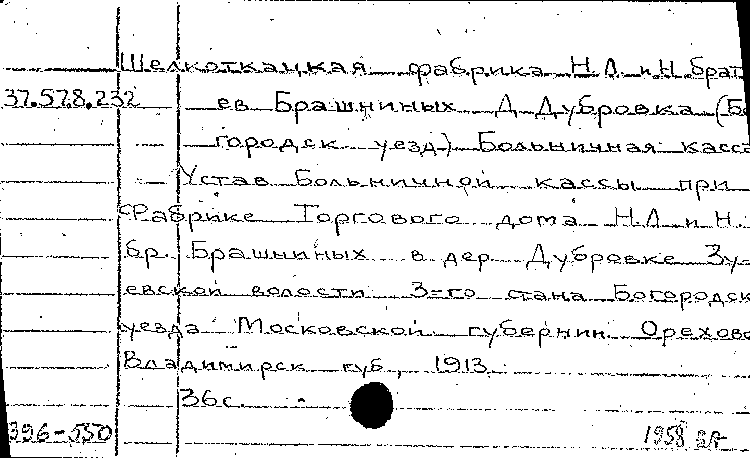 Шелкоткацкая фабрика Н.Л. и Н. брать
37.578.232 ев Брашниных Д. Дубровка (Бо
городск уезд) Больничная касса
Устав Больничной кассы при
фабрике Торгового дома Н.Л. и Н.
бр. Брашниных в дер Дубровке Зу-
евской волости 3-го стана Богородск
уезда Московской губернии Орехово
Владимирск губ, 1913
36с.
396-550 1958